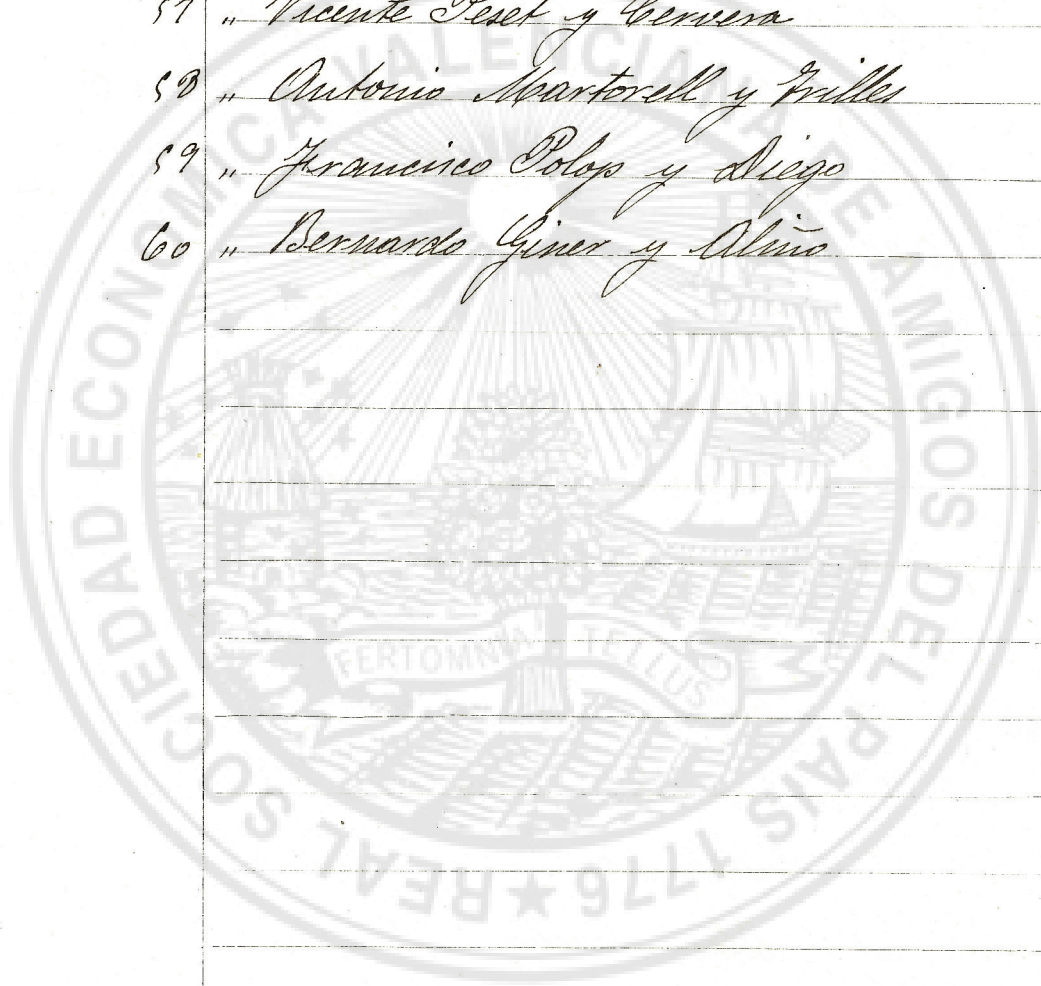 57 " Vicente Peset y Cervera
58 " Antonio Martorell y Trilles
59 " Francisco Polop y Diego
60 " Bernardo Giner y Aliño
REAL SOCIEDAD ECONOMICA VALENCIANA DE AMIGOS DEL PAIS 1776 ★
FERTOMNIA TELLUS